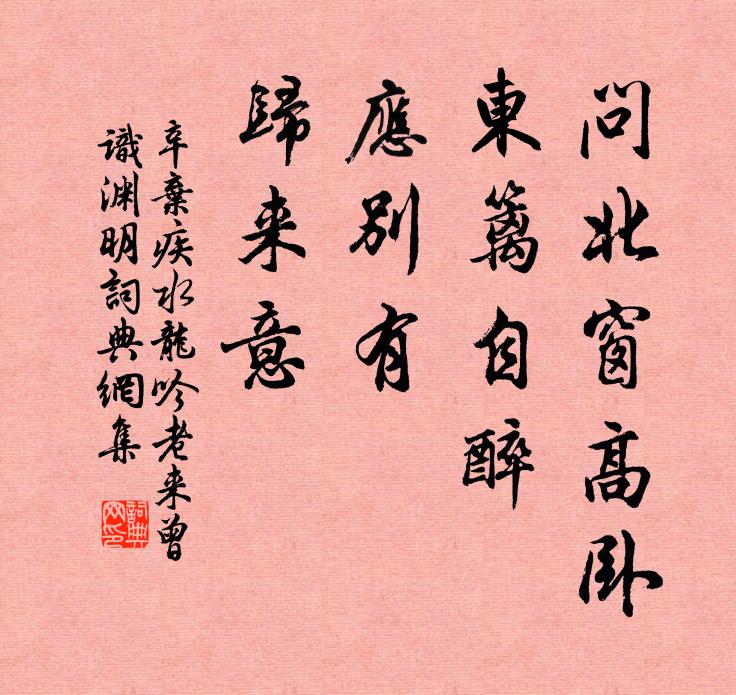 問北窗高卧
東籬自醉
應別有
歸来意
辛棄疾水龍吟老来曾
識渊明詞典網集
詞典
网印